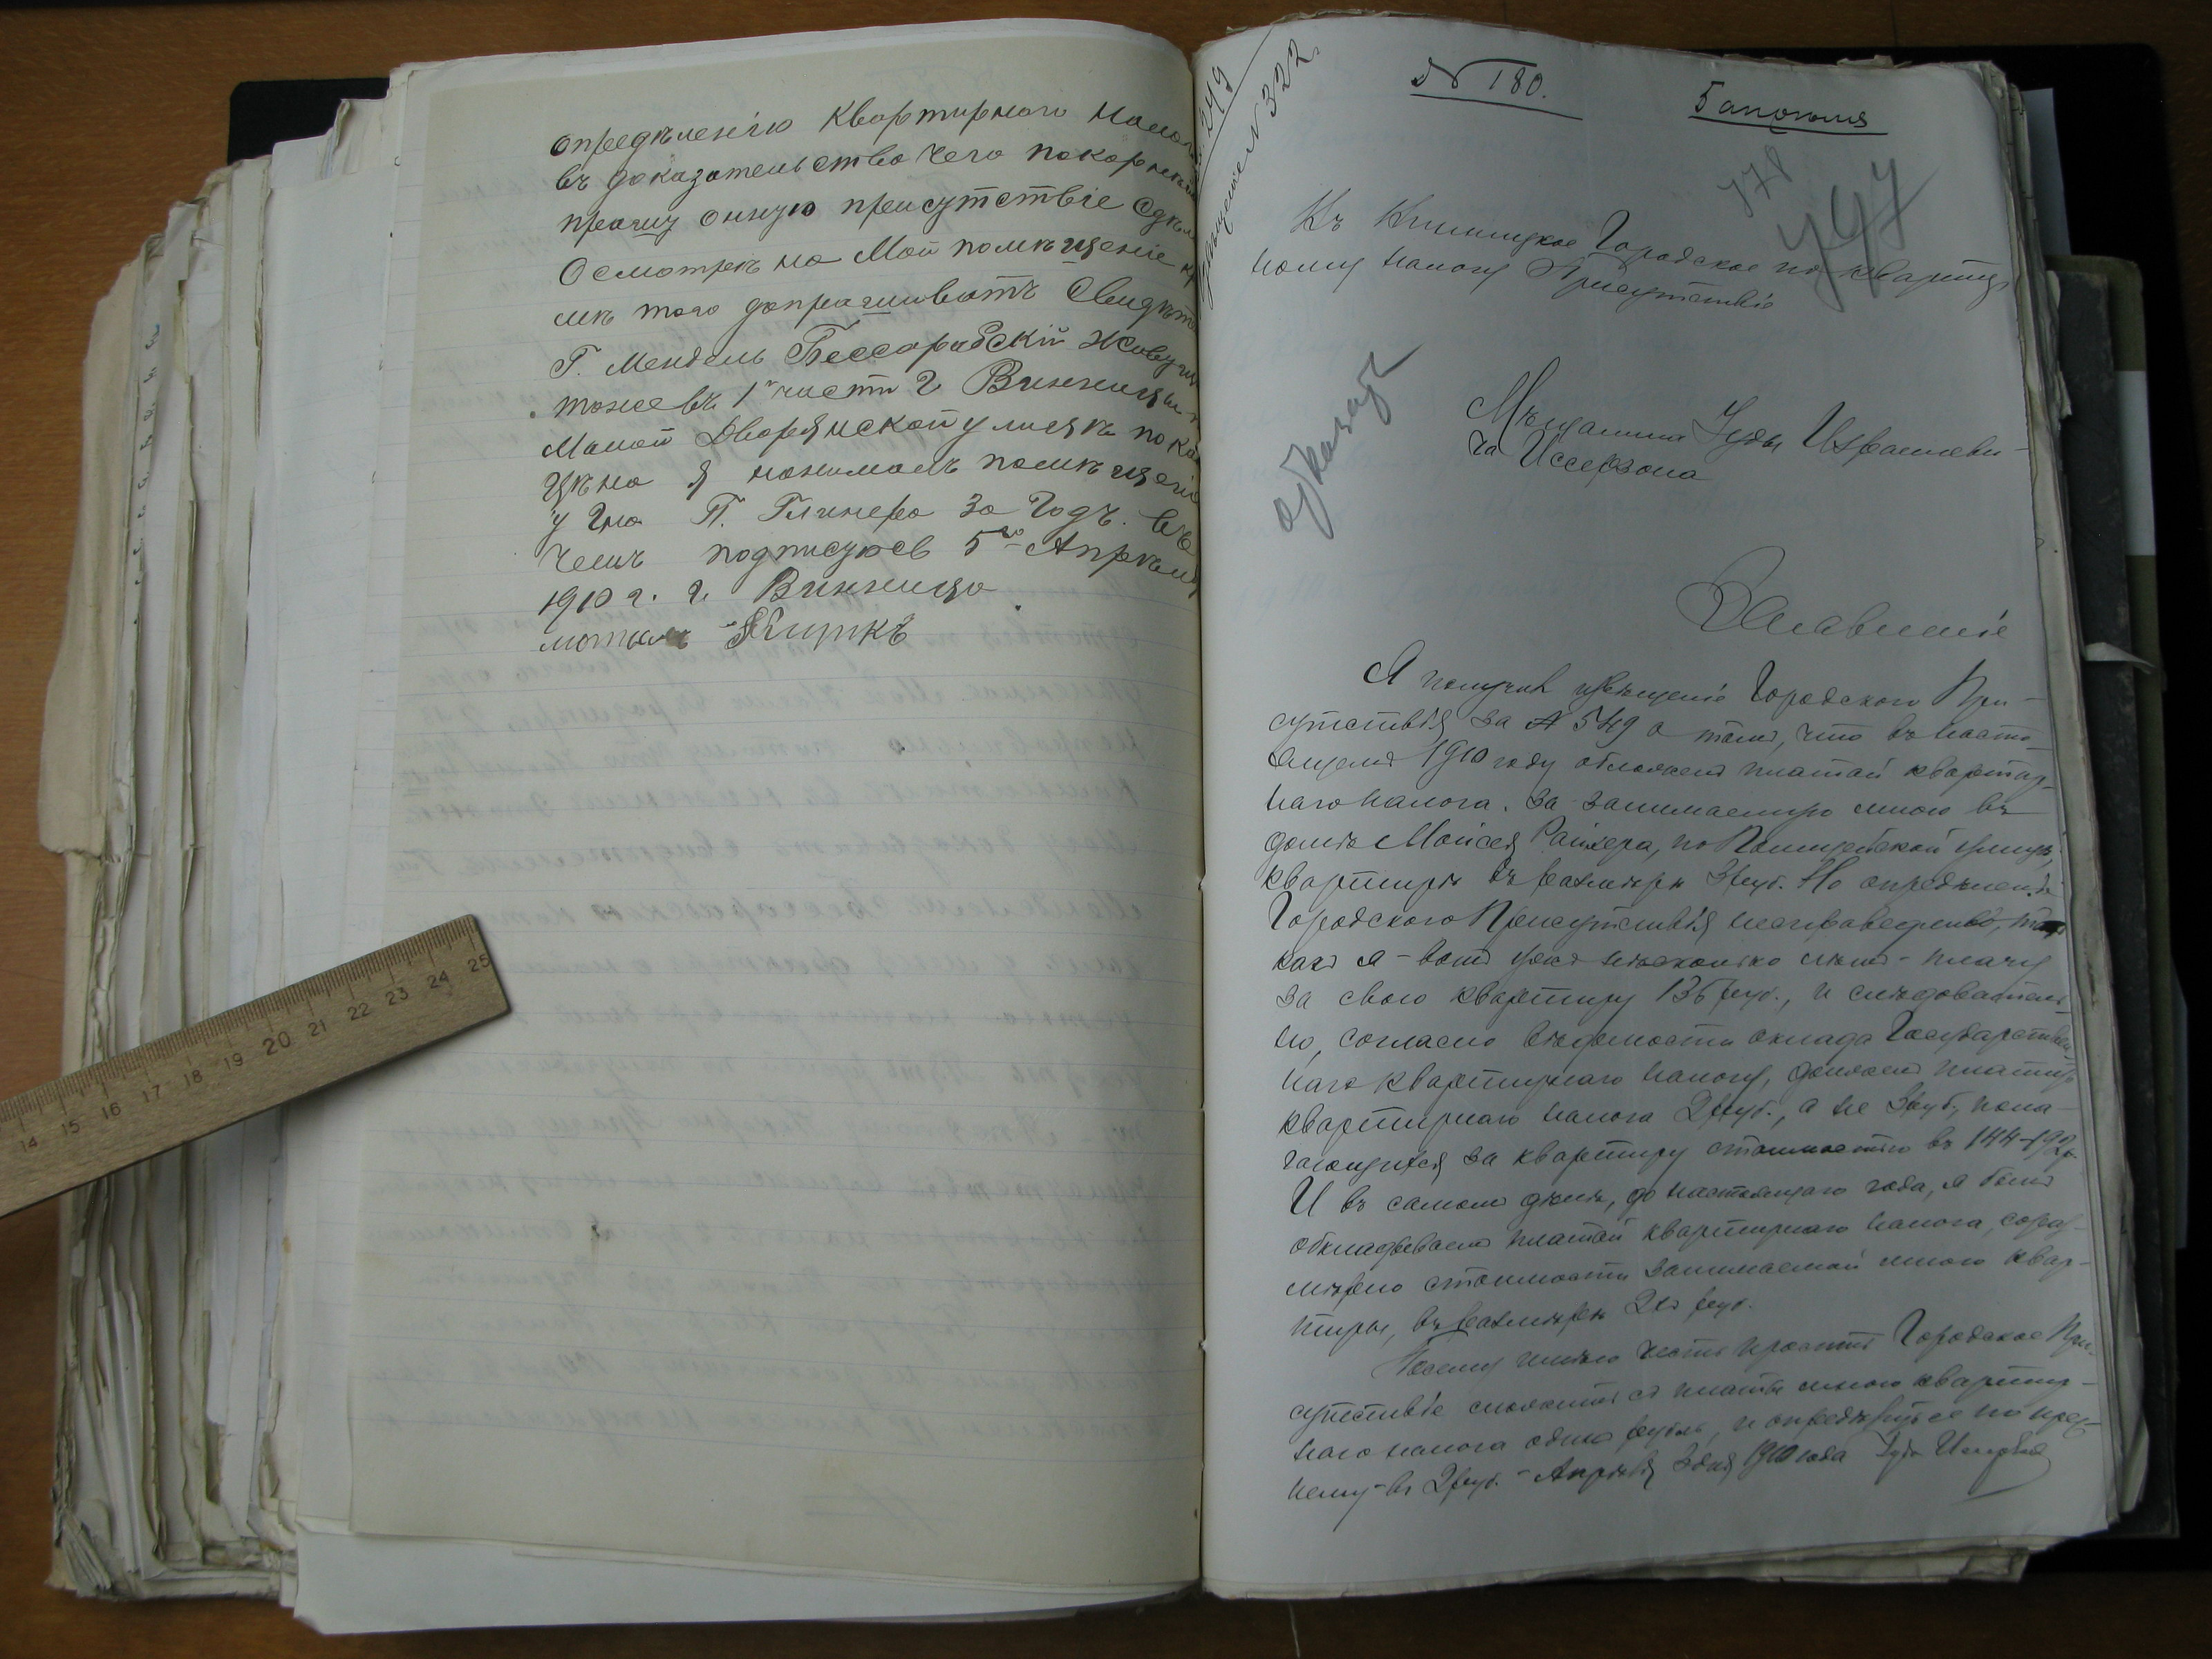 опредѣленію квартирного нало
въ доказательство чего покорнѣ
прошу онную присутствіе сдѣл
Осмотръ на Мой помѣщеніе кр
мѣ того допрашивать Свидѣт
Г. Мендель Бессарабскій Живущ
тоже въ 1й части г Винницы
Малой Дворянской улицѣ по ка
цѣна я нанималъ помѣщеніе
у Гна П. Глинера за Годъ. въ
чемъ подписуюсь 5го Апрѣля
1910 г. г. Винница
мотель
№ 322.
№ 180.
178
747
Въ Винницкое Городское по кварти
ному налогу Присутствіе
отказать
Мѣщанина Іуды Израилеви-
ча Иссерзона
Заявленіе
Я получив извѣщеніе Городского При-
сутствія за № 549 о томъ, что въ насто-
ящемъ 1910 году обложенъ платой квартир-
наго налога. За занимаемую мною въ
домѣ Мойсея Райхера, по улицѣ,
квартиры въ размѣрѣ 3 руб. Но опредѣленіе
Городского Присутствія несправедливо, так
какъ я - вотъ уже нѣсколько лѣтъ - плачу
за свою квартиру 135 руб., и слѣдователь-
но, согласно вѣдомости оклада Государствен
наго квартирнаго налогу, долженъ платить
квартирнаго налога 2 руб., а не 3 руб., пола-
гающихся за квартиру стоимостью въ 144-192 р.
И въ самомъ дѣлѣ, до настоящаго года, я былъ
обкладываемъ платой квартирнаго налога, сораз-
мѣрно стоимости занимаемой мною квар-
тиры, въ размѣрѣ 2хъ руб.
Посему имѣю честь просить Городское При-
сутствіе сложить съ платы мною квартир-
наго налога одинъ рубль, и опредѣлить ее по преж-
нему - въ 2 руб. - Апрѣля 3 дня 1910 года Іуда